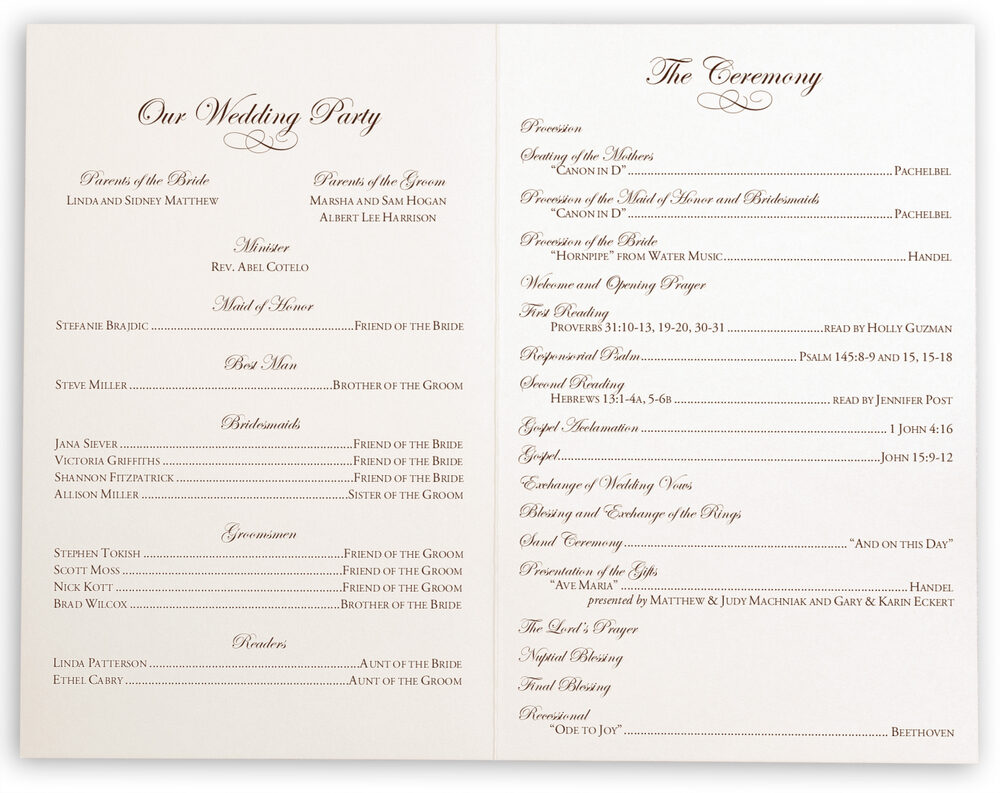 Our Wedding Party
Parents of the Bride
Linda and Sidney Matthew
Parents of the Groom
Marsha and Sam Hogan
Albert Lee Harrison
Minister
Rev. Abel Cotelo
Maid of Honor
Stefanie Brajdic ........ Friend of the Bride
Best Man
Steve Miller ........ Brother of the Groom
Bridesmaids
Jana Siever ........ Friend of the Bride
Victoria Griffiths ........ Friend of the Bride
Shannon Fitzpatrick ........ Friend of the Bride
Allison Miller ........ Sister of the Groom
Groomsmen
Stephen Tokish ........ Friend of the Groom
Scott Moss ........ Friend of the Groom
Nick Kott ........ Friend of the Groom
Brad Wilcox ........ Brother of the Bride
Readers
Linda Patterson ........ Aunt of the Bride
Ethel Cabry ........ Aunt of the Groom
The Ceremony
Procession
Seating of the Mothers
"Canon in D" ........ Pachelbel
Procession of the Maid of Honor and Bridesmaids
"Canon in D" ........ Pachelbel
Procession of the Bride
"Hornpipe" from Water Music ........ Handel
Welcome and Opening Prayer
First Reading
Proverbs 31:10-13, 19-20, 30-31 ........ read by Holly Guzman
Responsorial Psalm ........ Psalm 145:8-9 and 15, 15-18
Second Reading
Hebrews 13:1-4a, 5-6b ........ read by Jennifer Post
Gospel Acclamation ........ 1 John 4:16
Gospel ........ John 15:9-12
Exchange of Wedding Vows
Blessing and Exchange of the Rings
Sand Ceremony ........ "And on this Day"
Presentation of the Gifts
"Ave Maria" ........ Handel
presented by Matthew & Judy Machniak and Gary & Karin Eckert
The Lord's Prayer
Nuptial Blessing
Final Blessing
Recessional
"Ode to Joy" ........ Beethoven